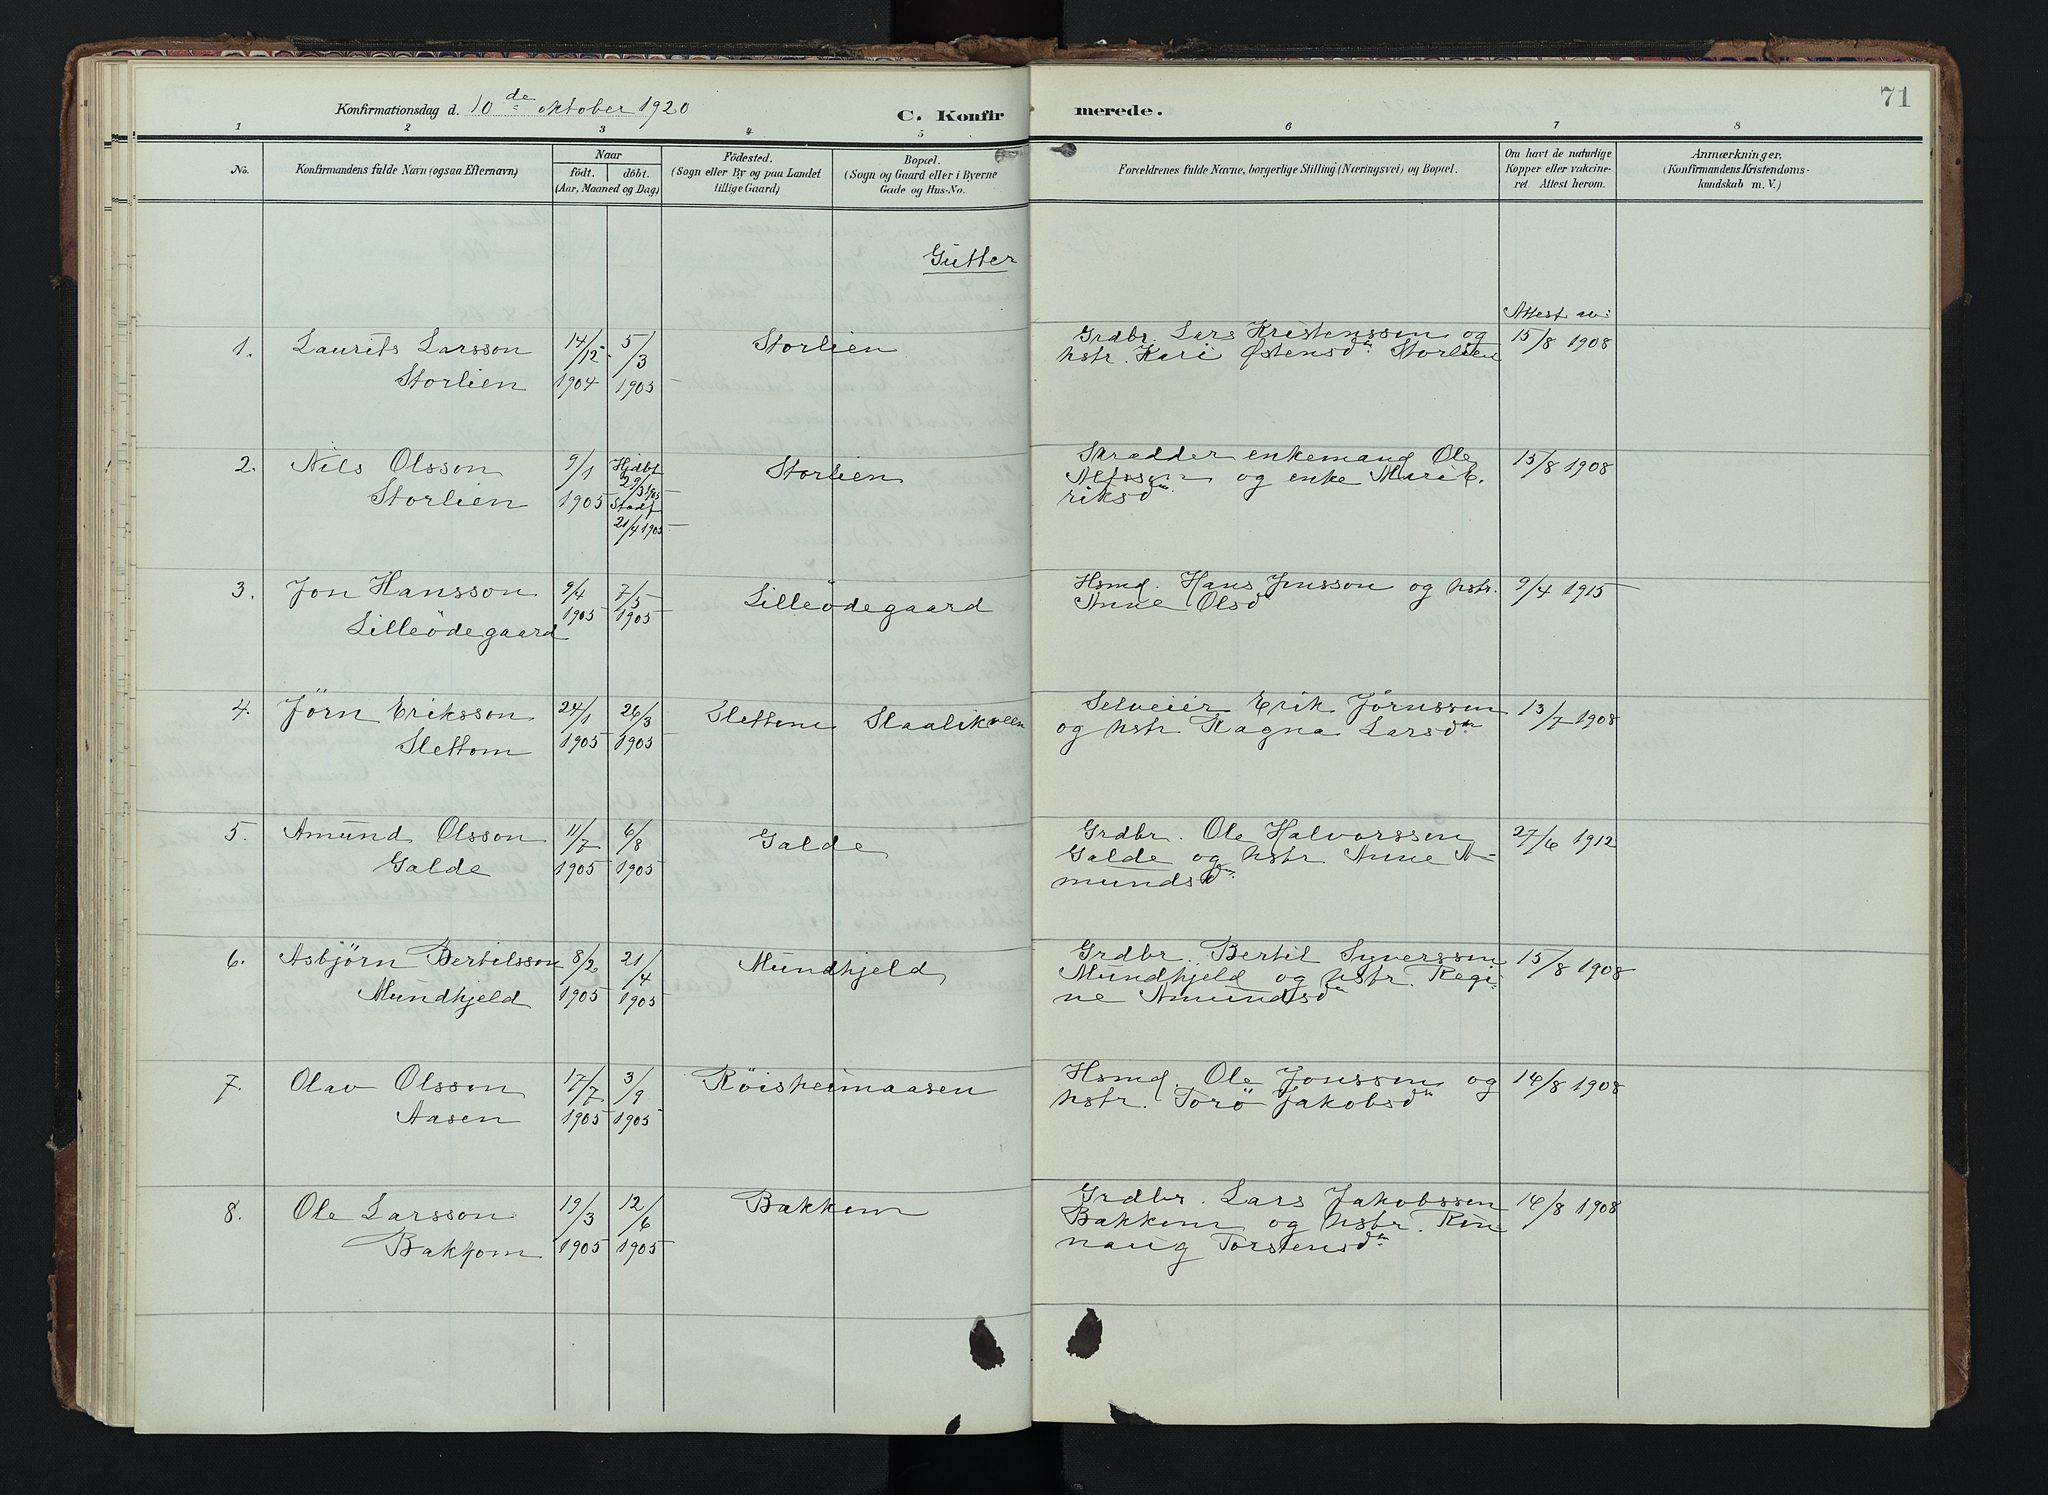 71
Konfirmationsdag d. 10de oktober 1920
C. Konfirmerede.
1 2 3 4 5 6 7 8
No.
Konfirmandens fulde Navn (ogsaa Efternavn)
Naar
födt. döbt.
(Aar, Maaned og Dag)
Födested.
(Sogn eller By og paa Landet
tillige Gaard)
Bopæl.
(Sogn og Gaard eller i Byerne
Gade og Hus-No.
Forældrenes fulde Navne, borgerlige Stilling (Næringsvei) og Bopæl.
Om havt de naturlige
Kopper eller vakcine-
ret Attest herom.
Anmærkninger.
(Konfirmandens Kristendoms-
kundskab m. V.)
Gutter
Attest av:
1. Laurits Larsson
Storlien
14/12 1904
5/3 1905
Storlien
Grdbr. Lars Kristenssen og
hstr. Kari Østensdtr Storlien
15/8 1908
2. Nils Olsson
Storlien
9/1 1905
Hjdbt
29/3 1905
Stadf
21/4 1905
Storlien
Skrædder enkemand Ole
Alfsson og enke Mari E-
riksdtr
15/8 1908
3. Jon Hansson
Lilleödegaard
9/4 1905
7/5 1905
Lilleödegaard
Hsmd. Hans Jonsson og hstr.
Anne Olsdtr
9/4 1915
4. Jörn Eriksson
Slettom
24/1 1905
26/3 1905
Slettom Staalikveen
Selveier Erik Jörnssen
og hstr Ragna Larsdtr
13/7 1908
5. Amund Olsson
Galde
11/7 1905
6/8 1905
Galde
Grdbr. Ole Halvorssen
Galde og hstr Anne A-
mundsdtr
27/6 1912
6. Asbjörn Bertilsson
Mundhjeld
8/2 1905
21/4 1905
Mundhjeld
Grdbr. Bertil Syverssen
Mundhjeld og hstr. Regi-
ne Amundsdtr
15/8 1908
7. Olav Olsson
Aasen
17/7 1905
3/9 1905
Röisheimaasen
Hsmd. Ole Jonssen og
hstr. Torö Jakobsdtr
14/8 1908
8. Ole Larsson
Bakkom
19/3 1905
12/6 1905
Bakkom
Grdbr. Lars Jakobssen
Bakkom og hstr. Rön
naug Torstensdtr
14/8 1908